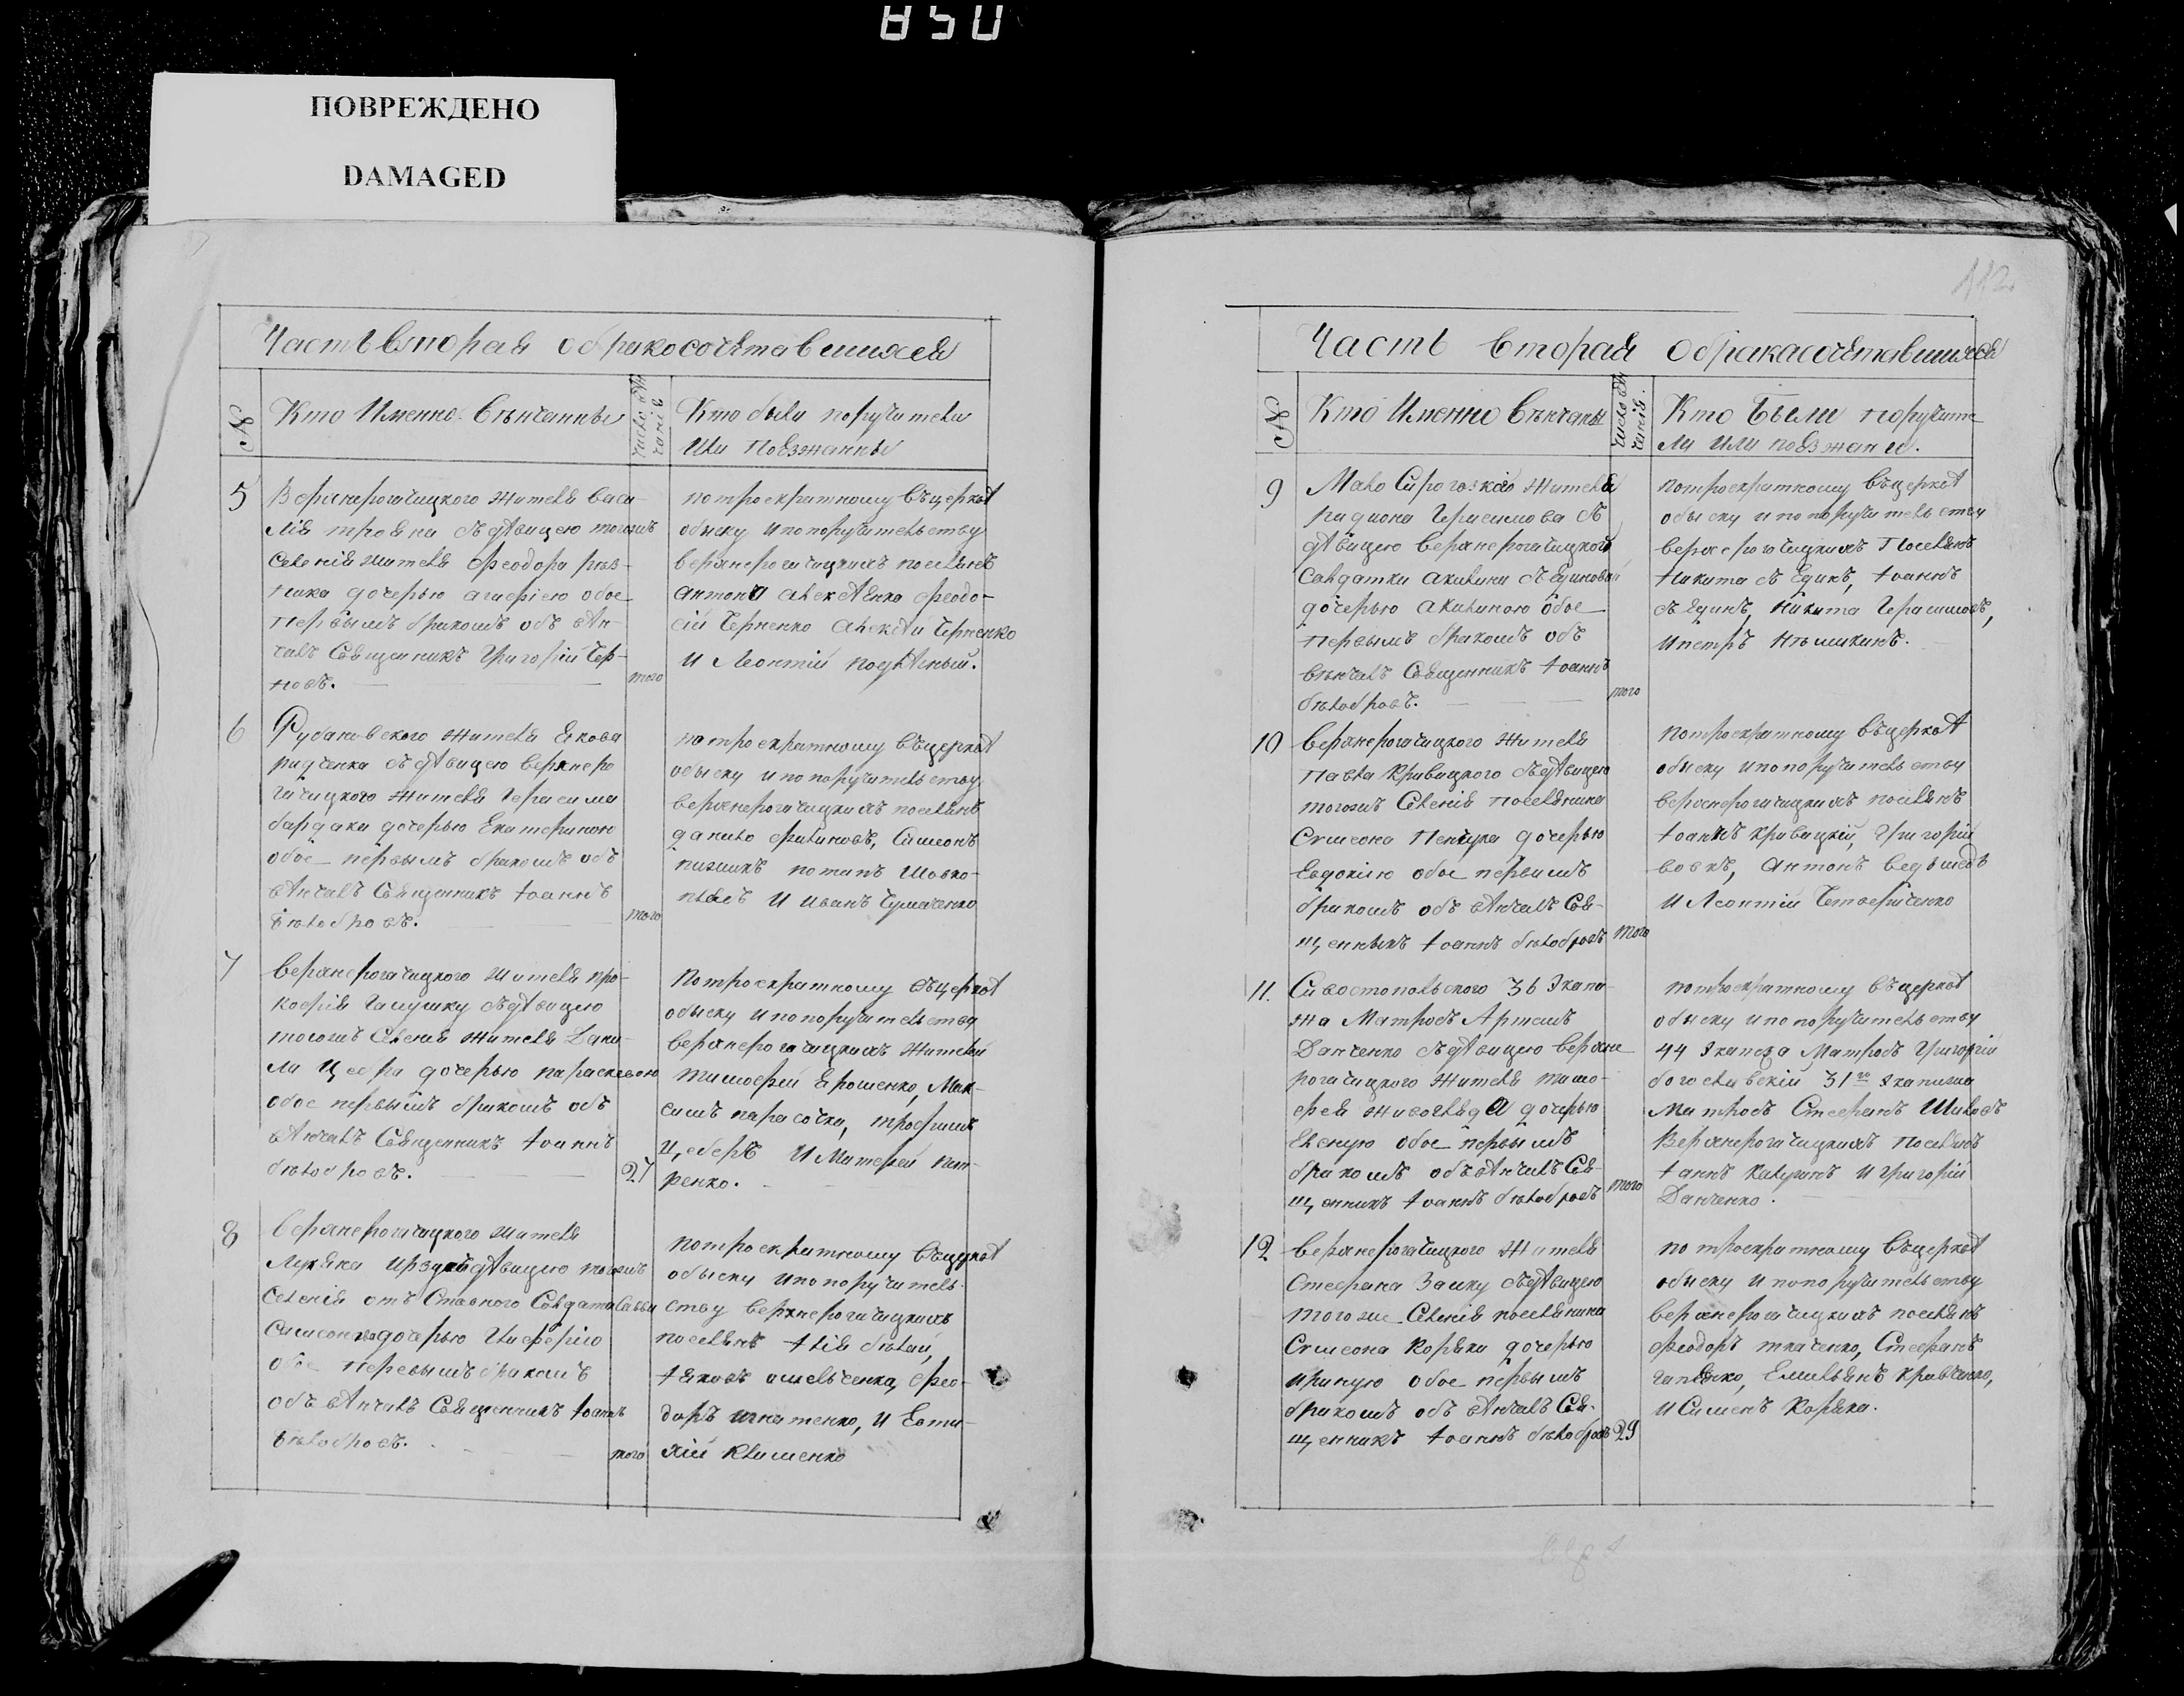 850
ПОВРЕЖДЕНО
DAMAGED
Часть вторая обракосочѣтавшихся
№
Кто Именно Вѣнчанны
Число вѣнчанія
Кто были поручители
Или Поѣзжанны
5
Верхнерогачицкого жителя Васи-
лія трояна съ дѣвицею тогожъ
Селенія жителя Феодора рѣз-
ника дочерью агафіею обое
Первымъ бракомъ объ вѣн-
чалъ Священникъ Григорій Чер-
новъ.
того
потроекратному въцеркві
обыску ипопоручительству
верхнерогачицкихъ поселянъ
антона алексѣенко феодо-
сій Черненко алексѣй Черненко
И Леонтій подѣтный.
6
Рубановского жителя Якова
радченка съ дѣвицею верхнеро
гачицкого жителя Герасима
бардака дочерью Екатериною
обое первымъ бракомъ объ
вѣнчалъ Священникъ Іоаннъ
бѣлобровъ.
того
потроекратному въцеркві
обыску ипопоручительству
верхнерогачицкихъ поселянъ
данило филиновъ, Симеонъ
потапъ Шовко-
плясъ И иванъ Чумаченко
7
верхнерогачицкого жителя про-
кофія Галушку съдѣвицею
тогожъ Селенія жителя Дани-
ла Цебра дочерью параскевою
обое первымъ бракомъ объ
вѣнчалъ Священникъ Іоаннъ
бѣлобровъ.
27
Потроекратному въцеркві
обыску ипопоручительству
верхнерогачицкихъ жителей
тимофей Ерошенко, Мак-
симъ парасочка, трофимъ
Цеберъ И Матфей пет-
ренко.
8
верхнерогачицкого жителя
съдѣвицею тогожъ
Селенія отъ Ставного Солдата Саввы
дочерью Гликеріею
обое первымъ бракомъ
объ вѣнчалъ Священникъ Іоаннъ
бѣлобровъ.
того
потроекратному въцеркві
обыску ипопоручитель-
ству верхнерогачицкихъ
поселянъ Илія бѣлый,
Іяковъ омельченко, Фео-
доръ игнатенко, И Евти-
хій Клименко
112
Часть вторая Обракасочѣтавшихся
№
Кто Именно Вѣнчаны
Число вѣнчанія.
Кто Были поручите
ли или поѣзжаные.
9
Мало Сирогозкаго жителя
радиона Герасимова съ
дѣвицею верхнерогачицкой
Салдатки акилины съ Единовой
дочерью акилиною обое
первымъ бракомъ объ
вѣнчалъ Священникъ Іоаннъ
бѣлобровъ.
того
потроекратному въцеркві
обыску ипопоручительству
верхнерогачицкихъ Поселянъ
Никита съ Единъ, Іоаннъ
съ Единъ, Никита Герасимовъ,
Ипетръ
10
верхнерогачицкого жителя
Павла Кривицкого съдѣвицею
тогожъ Селенія поселянина
Симеона Пенцура дочерью
Евдокіею обое первымъ
бракомъ объ вѣнчалъ Свя-
щенникъ Іоаннъ бѣлобровъ
того
потроекратному въцеркві
обыску ипопоручительству
верхнерогачицкихъ поселянъ
Іоаннъ кривицкій, Григорій
вовкъ, антонъ
И Леонтій Четвериченко
11.
Сивостопольского 36 Экипа-
жа Матросъ Артемъ
Данченко съдѣвицею верхне
рогачицкого жителя тимо-
фея живогляда дочерью
Еленую обое первымъ
бракомъ объвѣнчалъ Свя-
щенникъ Іоаннъ бѣлобровъ
того
потроекратному въцеркві
обыску ипопоручительству
44 Экипажа Матросъ Григорій
богославскій 31го Экипажа
Матросъ Стефанъ Шиловъ
Верхнерогачицкихъ поселянъ
Іаннъ Калуринъ И Григорій
Данченко.
12
верхнерогачицкого жителя
Стефана Заику съдѣвицею
тогоже Селенія поселянина
Симеона Коряки дочерью
ириную обое первымъ
бракомъ объ вѣнчалъ Свя-
щенникъ Іоаннъ бѣлобровъ
29
потроекратному въцеркві
обыску ипопоручительству
верхнерогачицкихъ поселянъ
феодоръ ткаченко, Стефанъ
гапѣенко, Емельянъ кравченко,
И Сименъ Коряка.